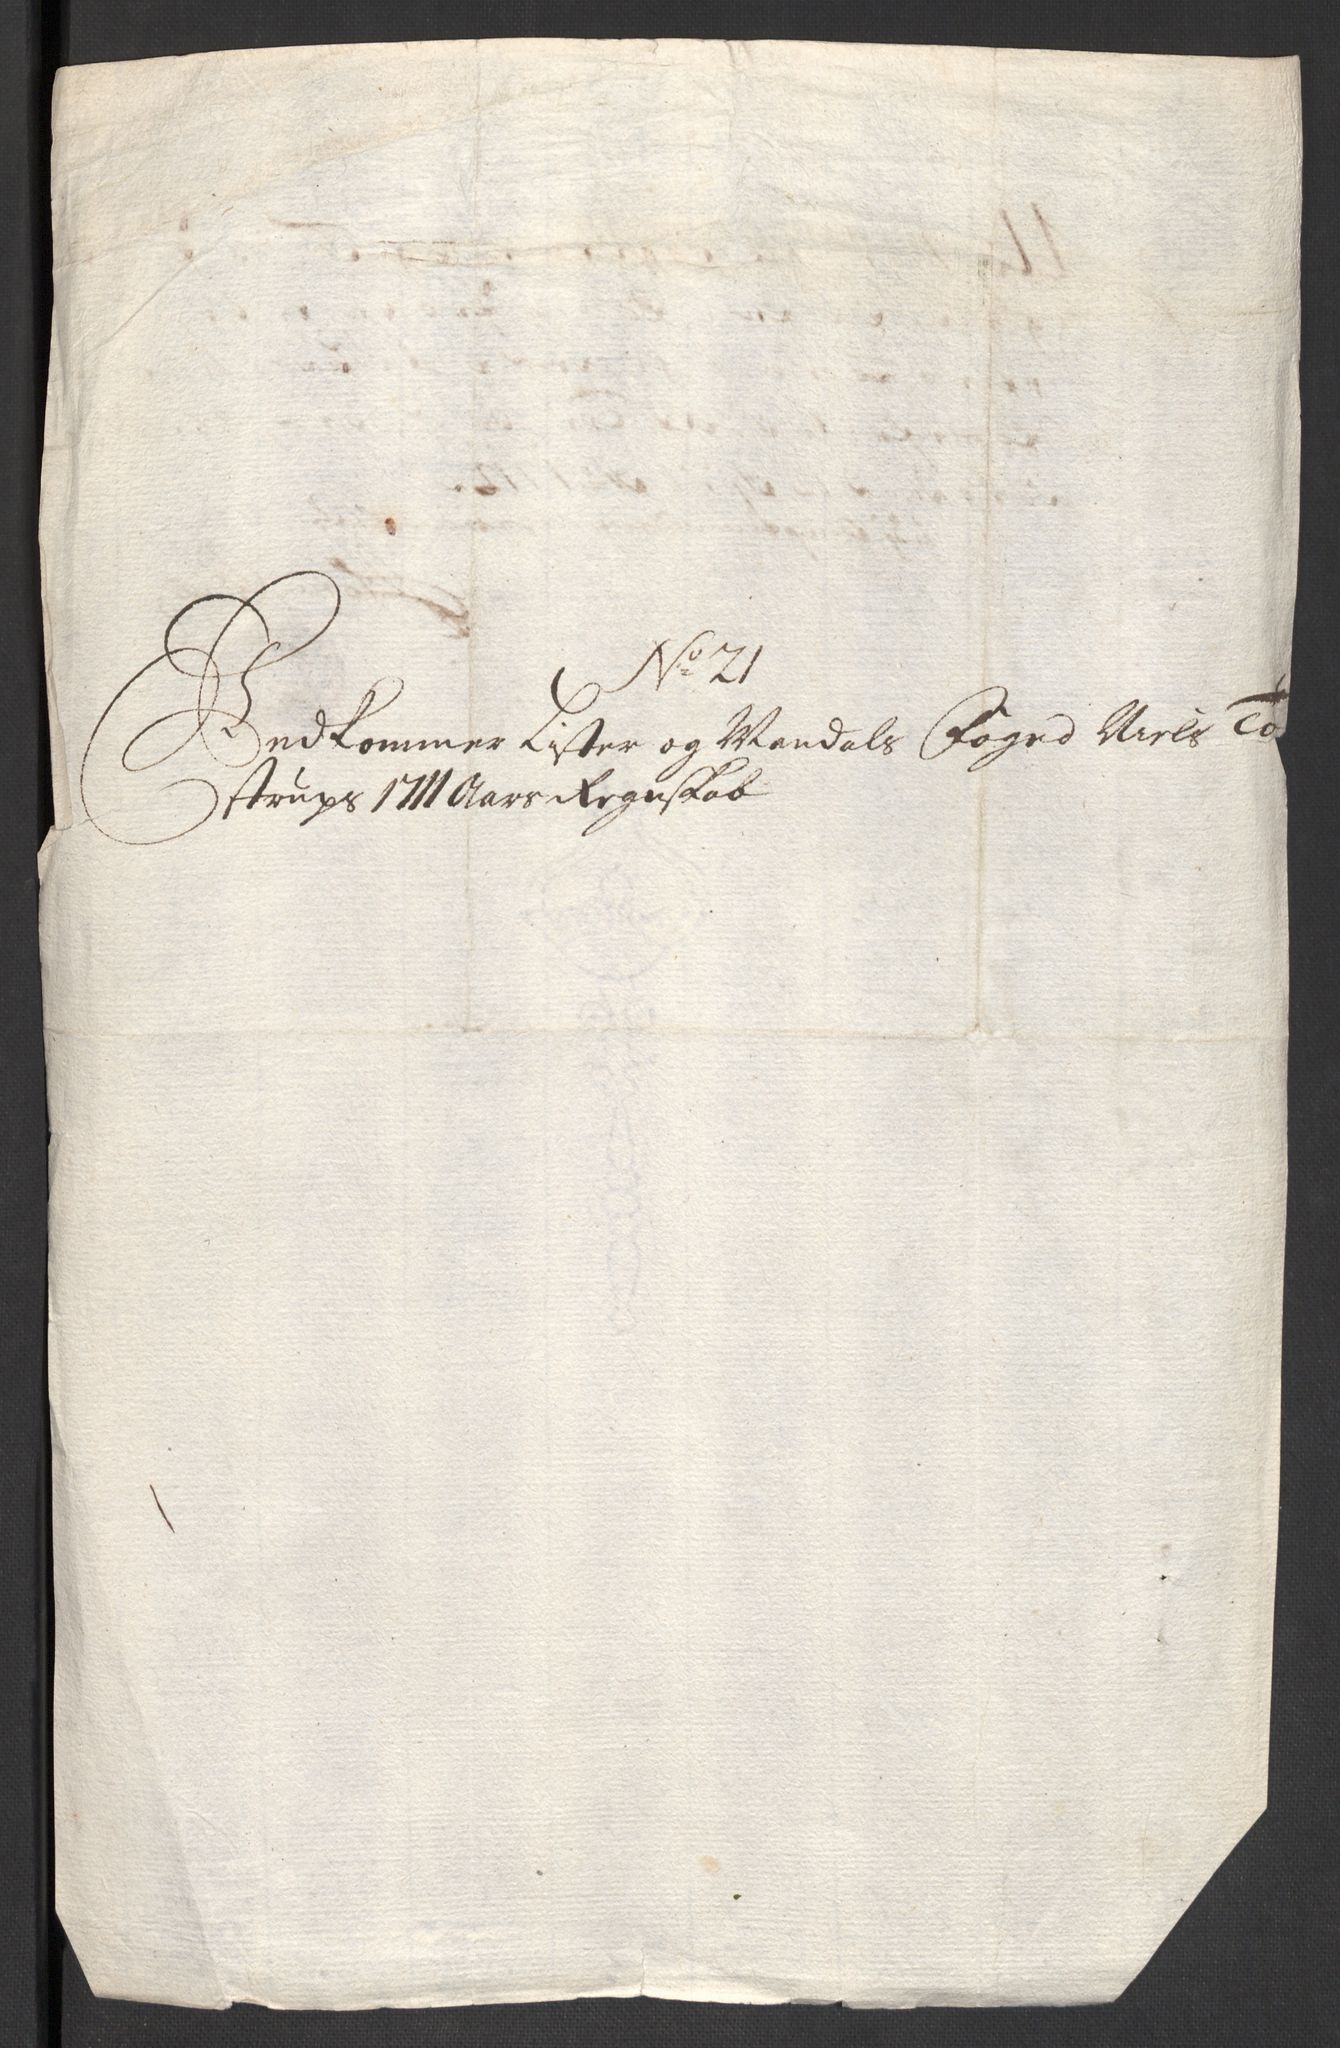 No 21
Vedkommer Lister og Mandals Foged Niels To
strups 1711 Aars Regnskab